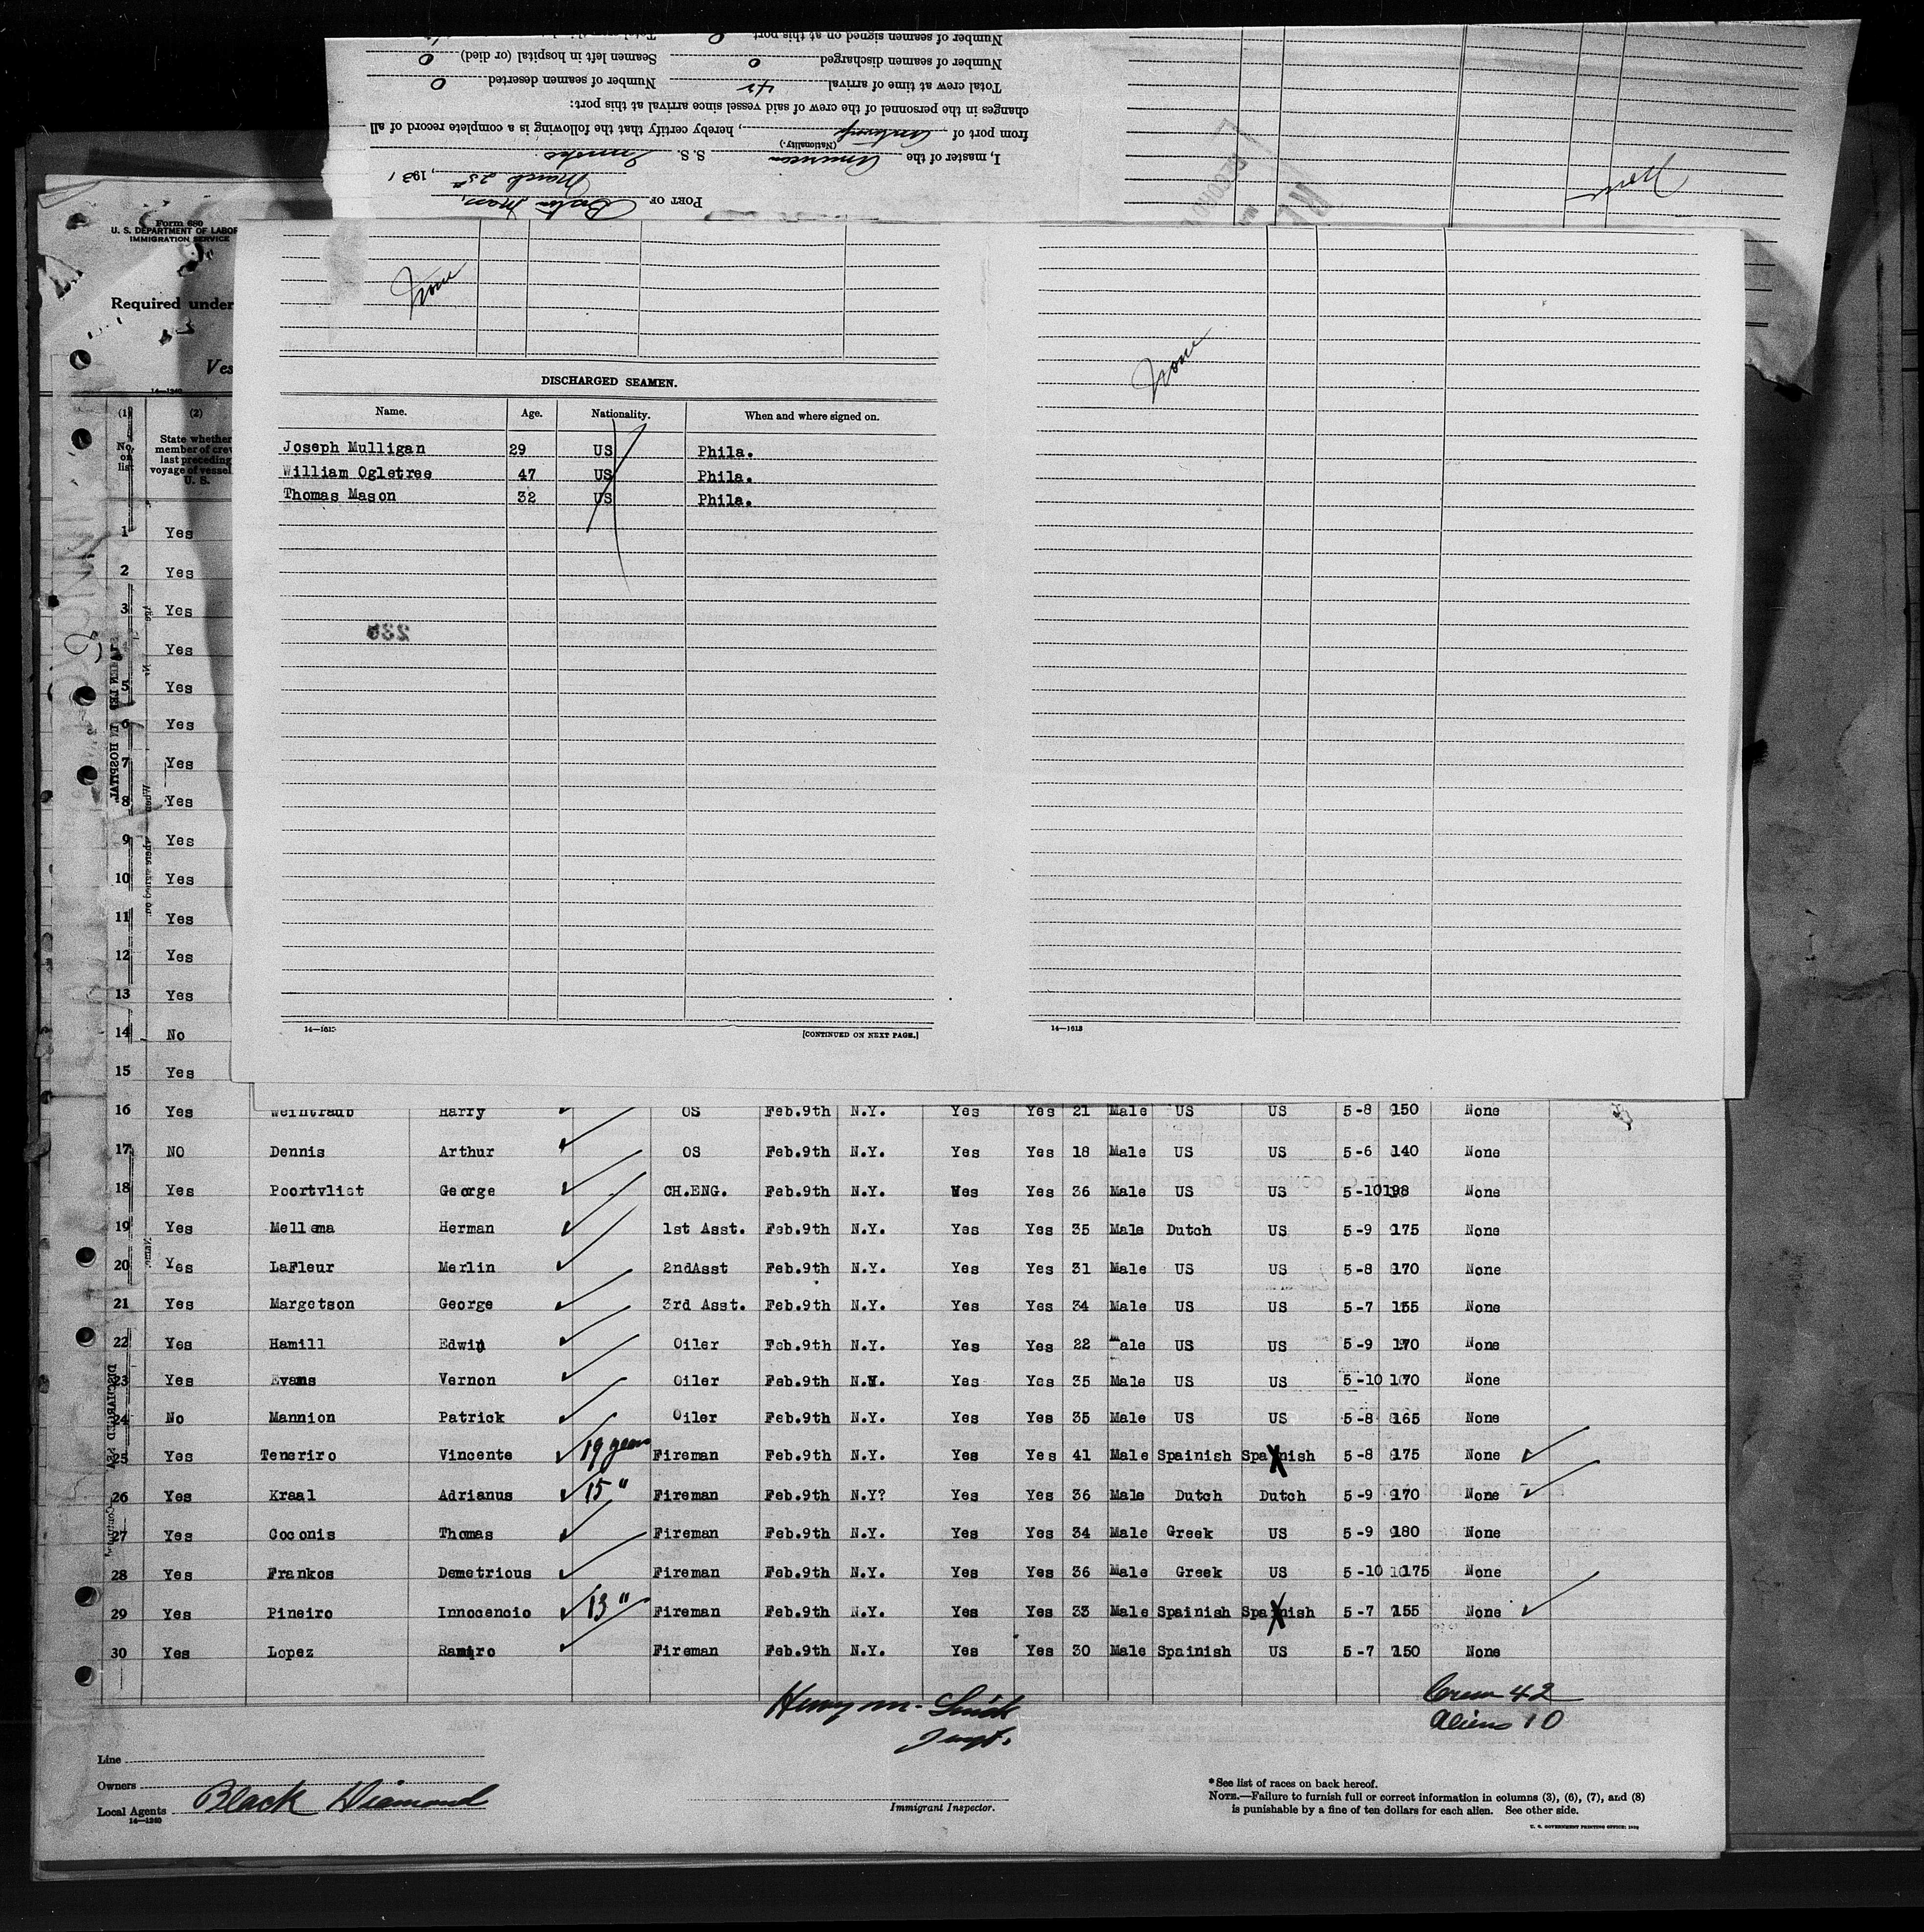 Number of seamen signed on at this port 0
Number of seamen discharged 0 Seamen left in hospital (or died) 0
Total crew at time of arrival 42 Number of seamen deserted 0
changes in the personnel of the crew of said vessel since arrival at this port:
from port of Antwerp, hereby certify that the following is a complete record of all
(Nationality.)
I, master of the American S. S.
March 25th, 1931
PORT OF Boston Mass,
None
Form 680
U. S. DEPARTMENT OF LABOR
IMMIGRATION SERVICE
Required under
Ves
14—1240
None
None
DISCHARGED SEAMEN.
Name. Age. Nationality. When and where signed on.
Joseph Mulligan 29 US Phila.
William Ogletree 47 US Phila.
Thomas Mason 32 US Phila.
235
14—1613 [CONTINUED ON NEXT PAGE.]
14—1613
(1) (2)
No. on list
State whether
member of crew
last preceding
voyage of vessel
U. S.
1 Yes
2 Yes
3 Yes
4 Yes
5 Yes
6 Yes
7 Yes
8 Yes
9 Yes
10 Yes
11 Yes
12 Yes
13 Yes
14 No
15 Yes
16 Yes Weintraub Harry OS Feb.9th N.Y. Yes Yes 21 Male US US 5-8 150 None
17 NO Dennis Arthur OS Feb.9th N.Y. Yes Yes 18 Male US US 5-6 140 None
18 Yes Poortvliet George CH.ENG. Feb.9th N.Y. Yes Yes 36 Male US US 5-10 198 None
19 Yes Mellema Herman 1st Asst. Feb.9th N.Y. Yes Yes 35 Male Dutch US 5-9 175 None
20 Yes LaFleur Merlin 2ndAsst Feb.9th N.Y. Yes Yes 31 Male US US 5-8 170 None
21 Yes Margetson George 3rd Asst. Feb.9th N.Y. Yes Yes 34 Male US US 5-7 155 None
22 Yes Hamill Edwin Oiler Feb.9th N.Y. Yes Yes 22 Male US US 5-9 170 None
23 Yes Evans Vernon Oiler Feb.9th N.Y. Yes Yes 35 Male US US 5-10 170 None
24 No Mannion Patrick Oiler Feb.9th N.Y. Yes Yes 35 Male US US 5-8 165 None
25 Yes Teneriro Vincente 19 years Fireman Feb.9th N.Y. Yes Yes 41 Male Spainish Spainish 5-8 175 None
26 Yes Kraal Adrianus 15 " Fireman Feb.9th N.Y? Yes Yes 36 Male Dutch Dutch 5-9 170 None
27 Yes Coconis Thomas Fireman Feb.9th N.Y. Yes Yes 34 Male Greek US 5-9 180 None
28 Yes Frankos Demetrious Fireman Feb.9th N.Y. Yes Yes 36 Male Greek US 5-10 175 None
29 Yes Pineiro Innocencio 13 " Fireman Feb.9th N.Y. Yes Yes 33 Male Spainish Spainish 5-7 155 None
30 Yes Lopez Ramiro Fireman Feb.9th N.Y. Yes Yes 30 Male Spainish US 5-7 150 None
Henry M.
Crew 42
Aliens 10
Line
Owners
Local Agents Black Diamond
14—1240
Immigrant Inspector.
*See list of races on back hereof.
NOTE.—Failure to furnish full or correct information in columns (3), (6), (7), and (8)
is punishable by a fine of ten dollars for each alien. See other side.
U. S. GOVERNMENT PRINTING OFFICE: